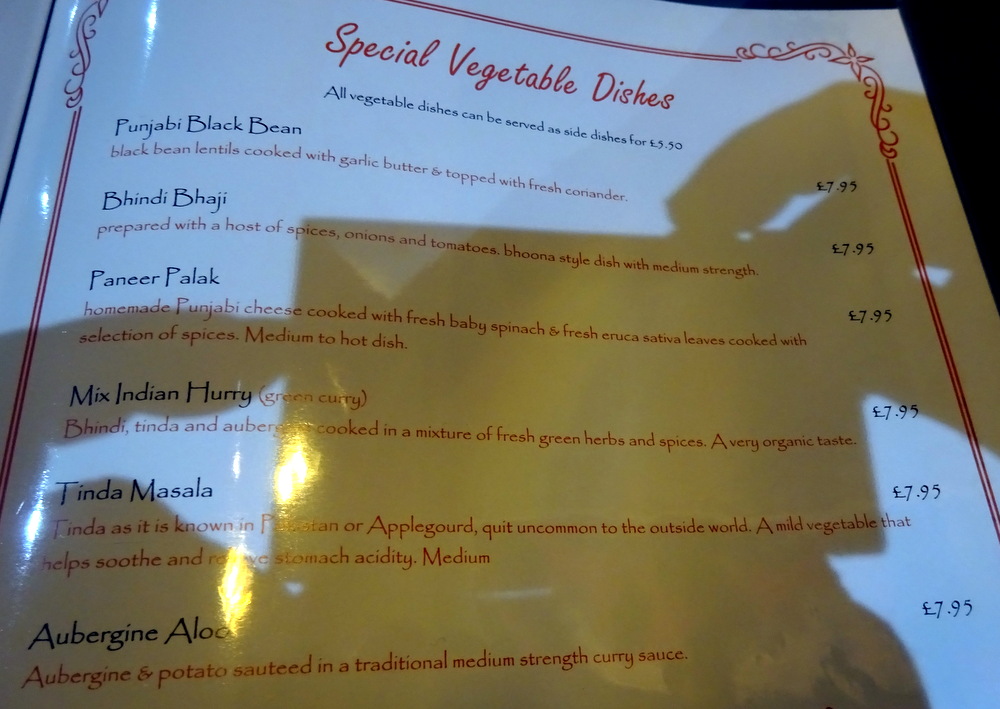 Special Vegetable Dishes
All vegetable dishes can be served as side dishes for £5.50
Punjabi Black Bean
black bean lentils cooked with garlic butter & topped with fresh coriander.
£7.95
Bhindi Bhaji
prepared with a host of spices, onions and tomatoes. bhoona style dish with medium strength.
£7.95
Paneer Palak
homemade Punjabi cheese cooked with fresh baby spinach & fresh eruca sativa leaves cooked with
£7.95
selection of spices. Medium to hot dish.
Mix Indian Hurry (green curry)
£7.95
Bhindi, tinda and aubergine cooked in a mixture of fresh green herbs and spices. A very organic taste.
Tinda Masala
£7.95
Tinda as it is known in Pakistan or Applegourd, quit uncommon to the outside world. A mild vegetable that
helps soothe and relieve stomach acidity. Medium
Aubergine Aloo
£7.95
Aubergine & potato sauteed in a traditional medium strength curry sauce.